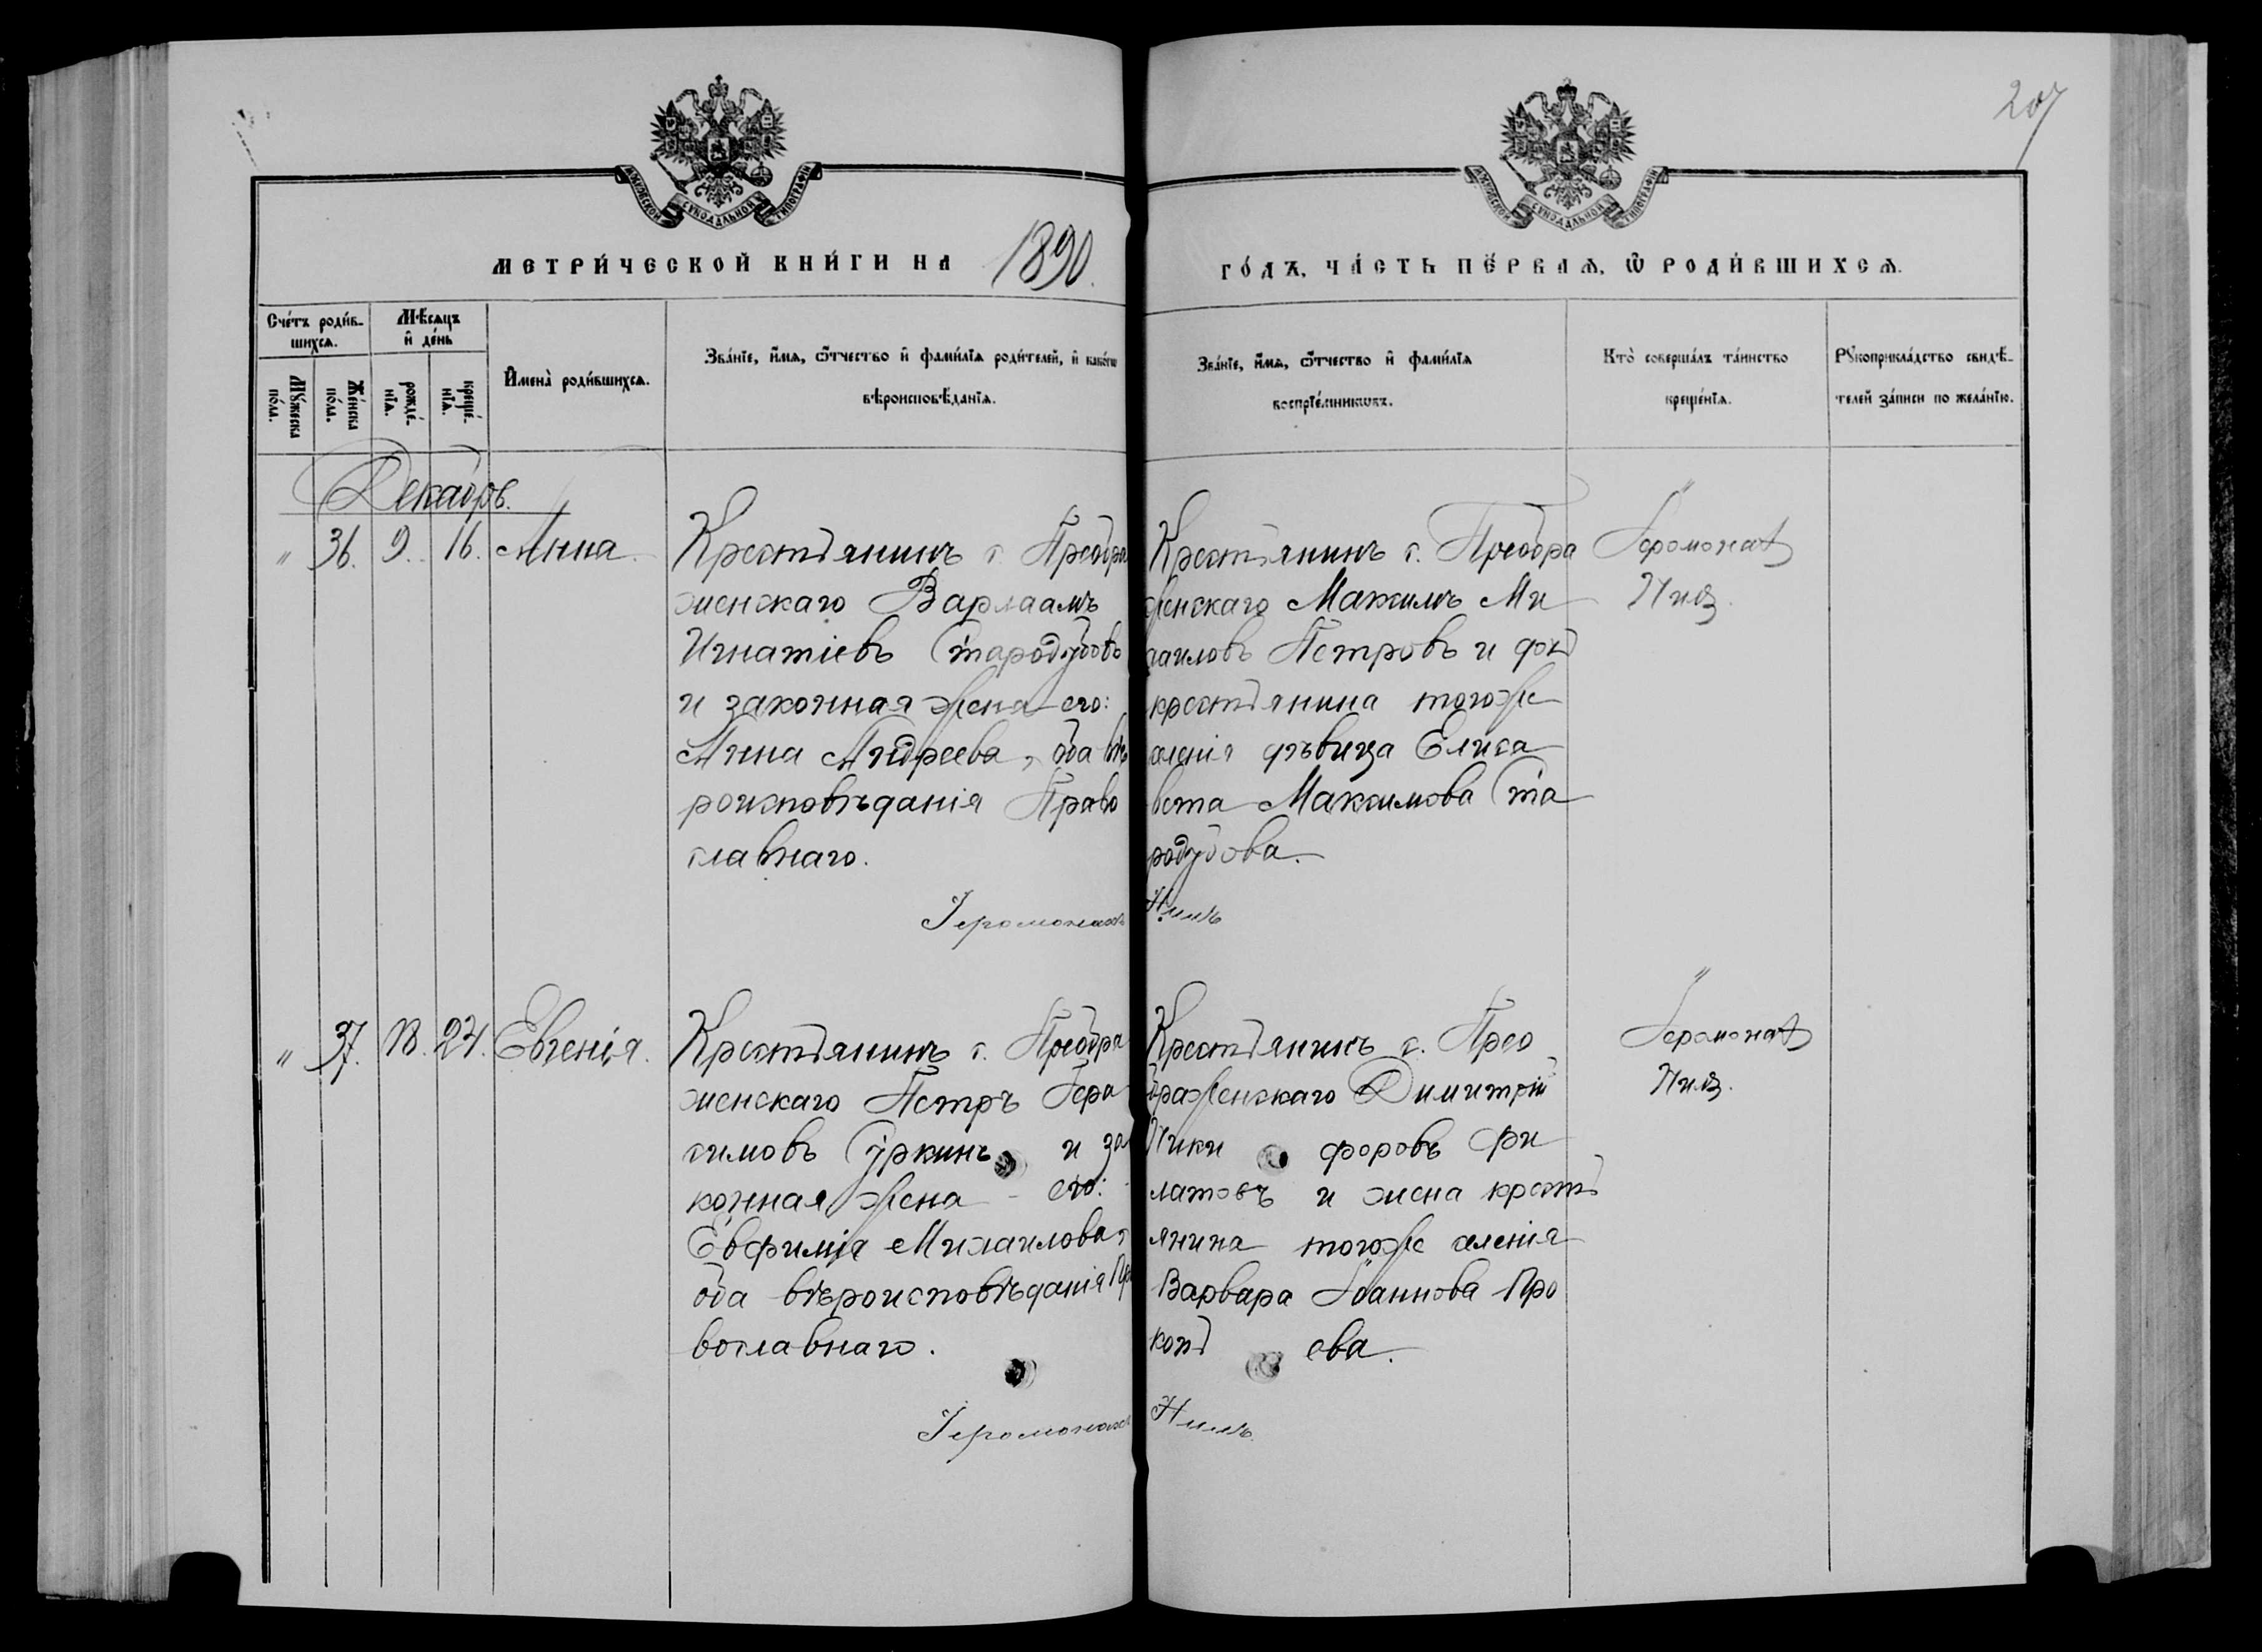 207
МОСКОВСКОЙ СѴНОДАЛЬНОЙ ТИПОГРАФІИ
МОСКОВСКОЙ СѴНОДАЛЬНОЙ ТИПОГРАФІИ
МЕТРИ́ЧЕСКОЙ КНИ́ГИ НА 1890.
ГО́ДЪ, ЧА́СТЬ ПЕ́РВАѦ, Ѿ РОДИ́ВШИХСѦ.
Сче́тъ роди́в-
шихсѧ.
Мꙋ́жеска
по́ла.
Же́нска
по́ла.
Мѣ́сѧцъ
и҆ де́нь
рожде́-
нїѧ.
креще́-
нїѧ.
И҆мена̀ роди́вшихсѧ.
Зва́нїе, и҆́мѧ, ѻ҆́тчество и҆ фами́лїѧ роди́телей, и҆ како́гѡ
вѣроисповѣ́данїѧ.
Зва́нїе, и҆́мѧ, ѻ҆́тчество и҆ фами́лїѧ
воспрїе́мникѡвъ.
Кто̀ соверша́лъ та́инство
креще́нїѧ.
Рꙋкоприкла́дство свидѣ́-
телей за́писи по жела́нїю.
Декабрь.
" 36. 9. 16. Анна.
Крестьянинъ с. Преобра
женскаго Варлаамъ
Игнатіевъ Стародубовъ
и законная жена его:
Анна Андреева, оба вѣ
роисповѣданія Право
славнаго.
Крестьянинъ с. Преобра
женскаго Максимъ Ми
хаиловъ Петровъ и дочь
крестьянина тогоже
селенія дѣвица Елиса
вета Максимова Ста
родубова.
Іеромонахъ
Нилъ.
Іеромонахъ Нилъ
" 37. 18. 24. Евгенія.
Крестьянинъ с. Преобра
женскаго Петръ Гера
симовъ Суркинъ и за
конная жена его:
Евфимія Михаилова,
оба вѣроисповѣданія Пра
вославнаго.
Крестьянинъ с. Прео
браженскаго Димитрій
Ники форовъ Фи
латовъ и жена кресть
янина тогоже селенія
Варвара Іоаннова Про
копь ева.
Іеромонахъ
Нилъ.
Іеромонахъ Нилъ.